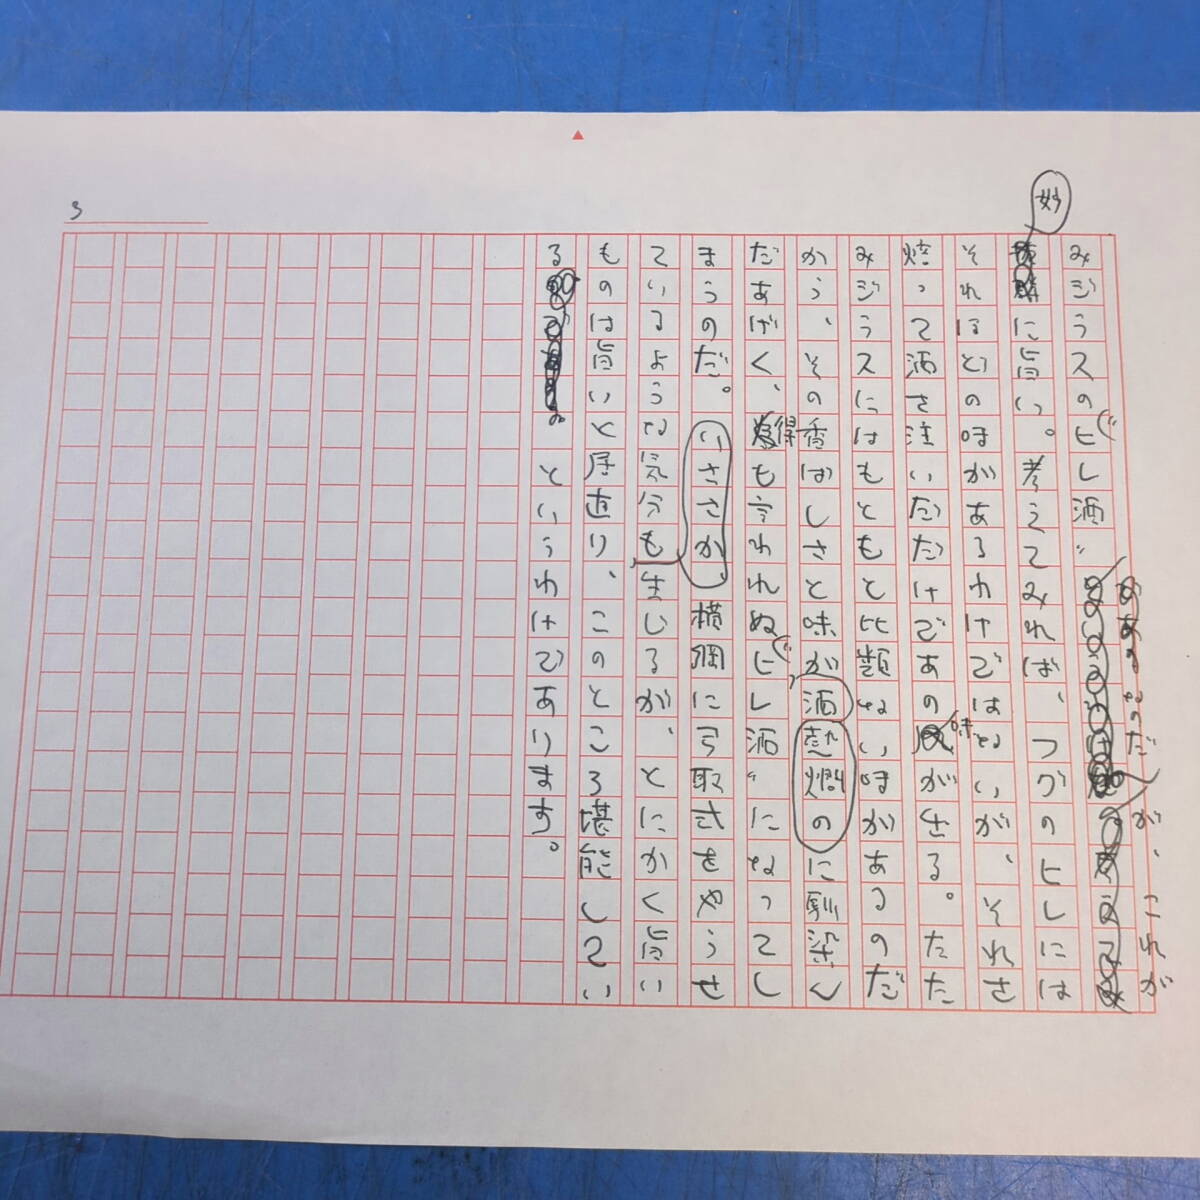 3
みジラスのヒレ酒〟があるなのだが、これが
妙に旨い。考えてみれば、フグのヒレには
それほどの味があるわけではないが、それさ
焙って酒さ注いだだけであの味が出る。たた
みジラスにはもともと比類ない味があるのだ
から、その香ばしさと味が酒熱燗のに馴染ん
だあげく、得も言われぬヒレ酒〟になってし
まうのだ。いささか横綱に弓取式をやらせ
ているような気分も生じるが、とにかく旨い
ものは旨いと居直り、このところ堪能してい
る。というわけであります。